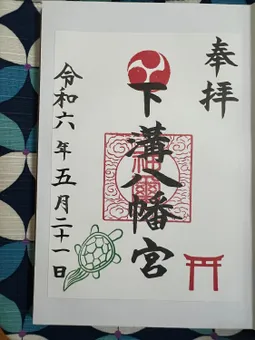 奉拝
下溝八幡宮
令和六年五月二十一日